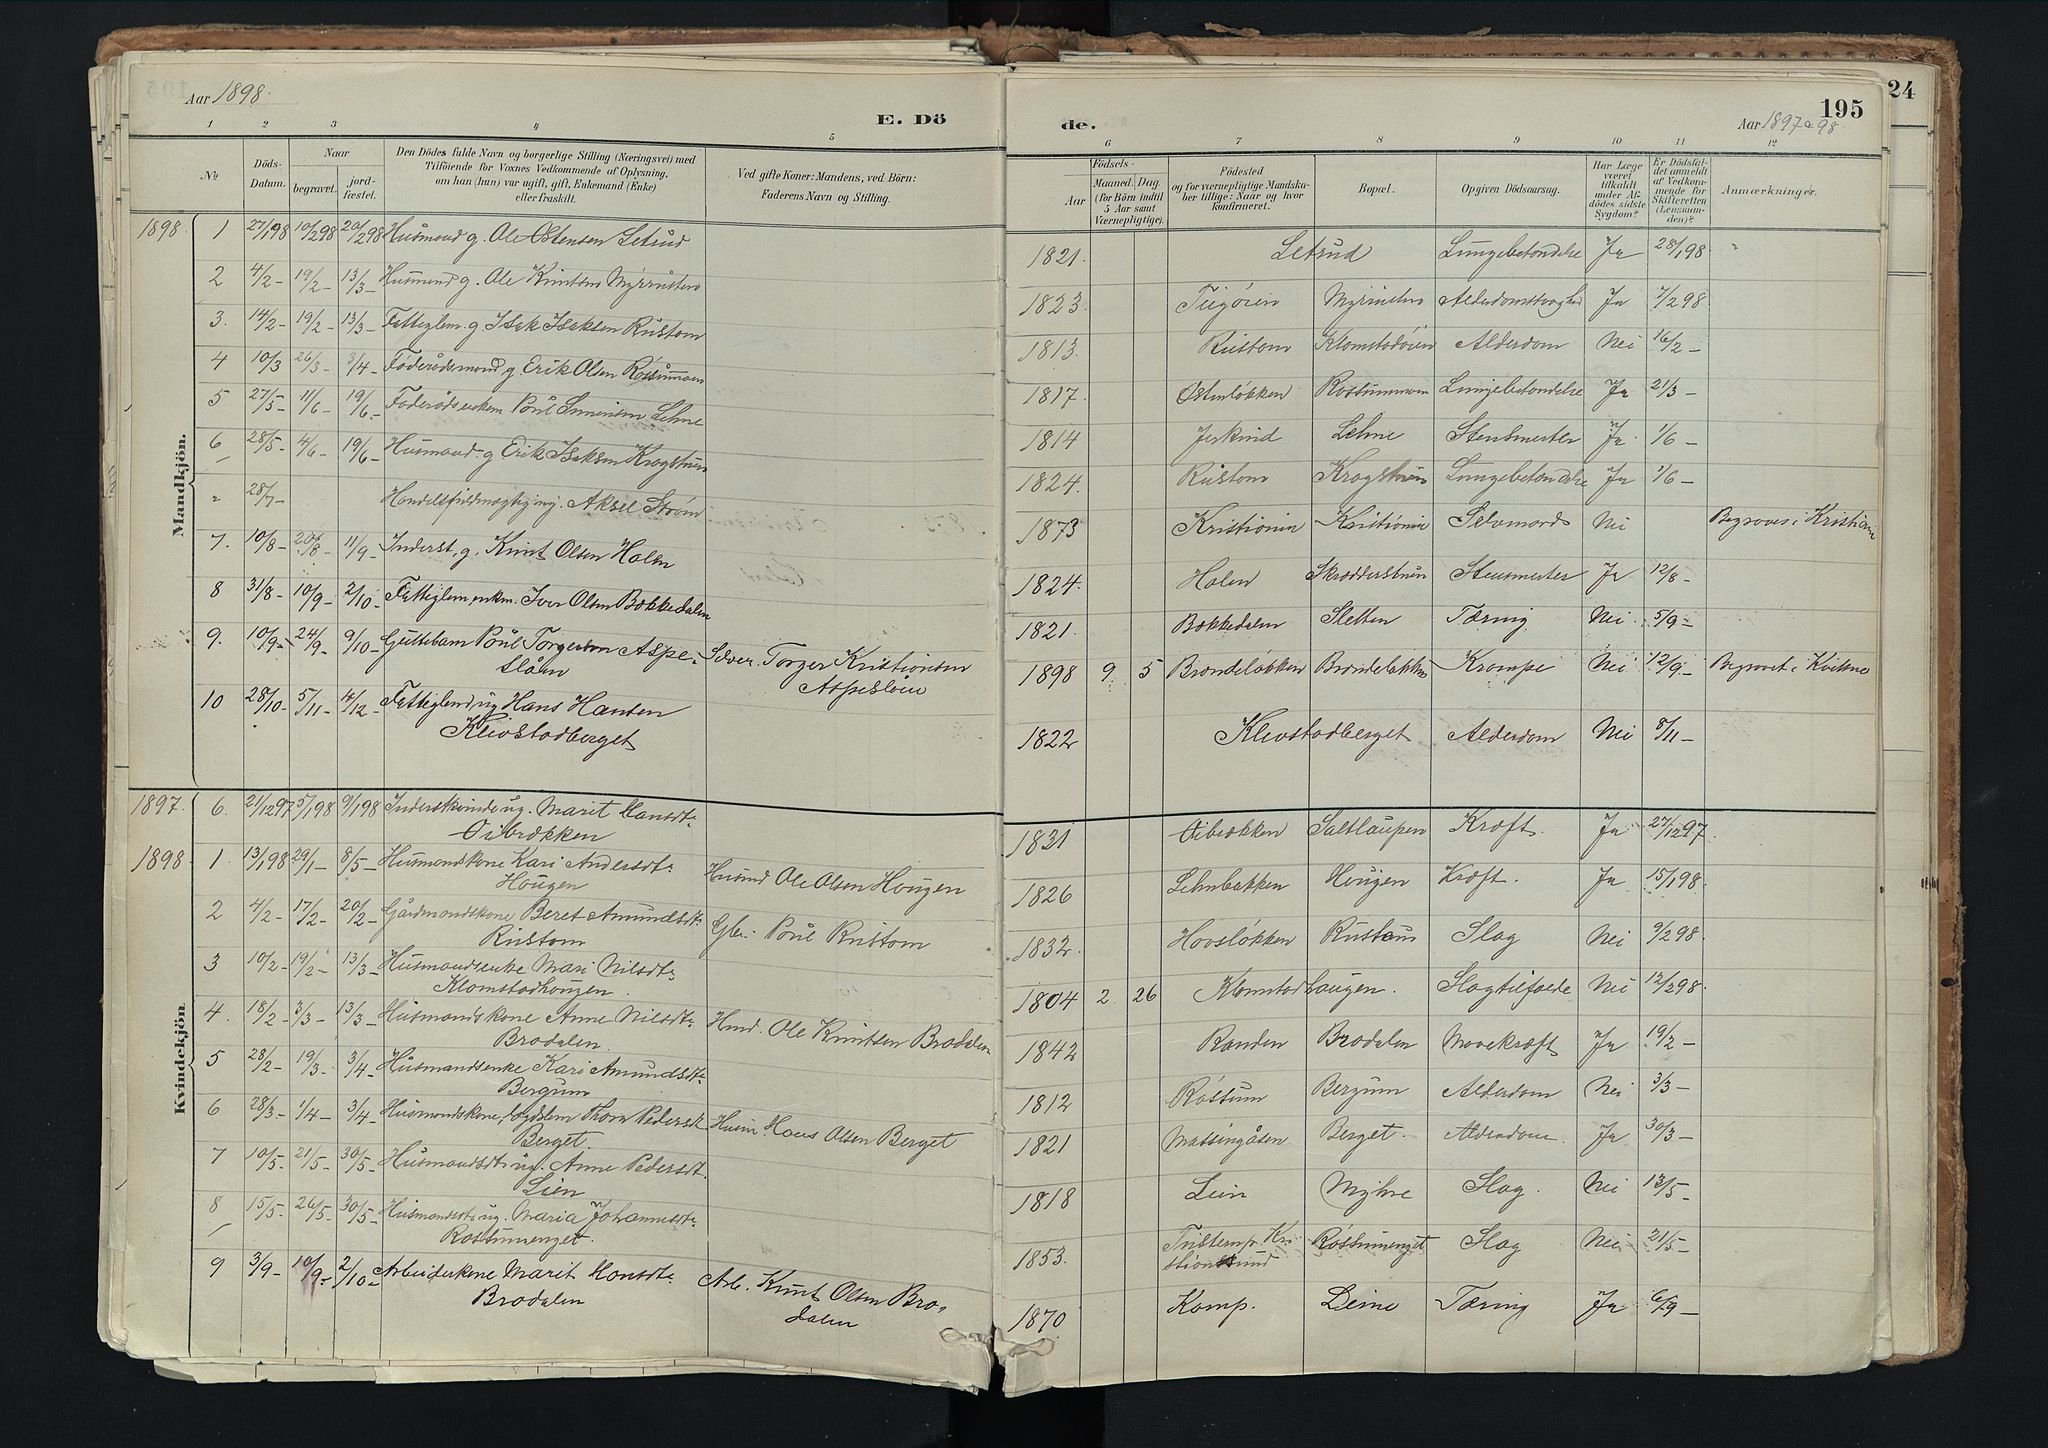 Aar 1898.
E. Dö
de.
195
24
Aar 1897 o 98.
1 2 3 4 5 6 7 8 9 10 11 12
№
Döds-Datum.
Naar
begravet.
jord-fæstet.
Den Dödes fulde Navn og borgerlige Stilling (Næringsvei) med
Tilföiende for Voxnes Vedkommende af Oplysning,
om han (hun) var ugift, gift, Enkemand (Enke)
eller fraskilt.
Ved gifte Koner: Mandens, ved Börn:
Faderens Navn og Stilling.
Födsels-
Aar
Maaned. Dag.
(for Börn indtil
5 Aar samt
Værnepligtige).
Födested
og for værnepligtige Mandska-
ber tillige: Naar og hvor
konfirmeret.
Bopæl.
Opgiven Dödsaarsag.
Har Læge
været
tilkaldt
under Af-
dödes sidste
Sygdom?
Er Dödsfal-
det anmeldt
af Vedkom-
mende for
Skifteretten
(Lensman-
den)?
Anmærkninger.
Mandkjön.
1898. 1 27/1 98 10/2 98 20/2 98 Husmand g. Ole Østensen Letrud 1821. Letrud Lungebetændelse Ja 28/1 98
2 4/2 - 19/2 - 13/3 - Husmand g. Ole Knutsen 1823 Ja 7/2 98.
3. 14/2 - 19/2 - 13/3 - Fattiglem. g. Isak Isaksen Rustom 1813. Rustom Alderdom Nei 16/2 -
4 10/3 26/3 - 3/4 - Føderådsmand g. Erik Olsen Rossummoen 1817. Rossummoen Lungebetændelse Ja 21/3 -
5 27/5 11/6 - 19/6 - Poul Lehne 1814 Jerkind Lehne Ja 1/6 -
6 28/5 - 4/6 - 19/6 - Husmand g. Erik Isaksen Krogstuen 1824. Rustom Krogstuen Lungebetændelse Ja 1/6 -
28/7 - Handelsfuldmægtig ug. Aksel Strøm 1873 Kristiania Kristiania Selvmord Nei Begraves i Kristiania
7. 10/8 - 20/8 - 11/9 - Inderst, g. Knut Olsen Holen 1824 Holen Skrædderstuen Ja 12/8 -
8 31/8 - 10/9 - 2/10 - Fattiglem, enkm. Iver Olsen Bækkedalen 1821. Bækkedalen Sletten Tæring Nei 5/9 -
9. 10/9 - 24/9 9/10 - Guttebarn Poul Torgersen Aspe-
slåen
Torger Kristiansen
Aspesløen
1898 9 5 Brendeløkken Brendeløkken Krampe Nei 12/9 - Begravet i Kvikne
10 28/10 - 5/11 - 4/12 - Fattiglem, ug Hans Hansen
Klevstadberget
1822 Klevstadberget Alderdom Nei 8/11 -
Kvindekjön.
1897. 6. 21/12 97 5/1 98 9/1 98 Inderstkvinde ug. Marit Hansdt.
Oibrækken
1821 Oibrækken Saltlaupen Kræft. Ja 27/12 97.
1898 1 13/1 98 29/1 - 8/5 - Husmandskone Kari Andersdt.
Hougen
Husmd Ole Olsen Hougen
1826 Lehnbakken Hougen Kræft. Ja 15/1 98.
2 4/2 - 17/2 - 20/2 - Gårdmandskone Beret Amundsdt.
Rustom
Gbr. Poul Rustom
1832 Hovsløkken Rustom Slag Nei 9/2 98
3 10/2 - 19/2 - 13/3 - Husmandsenke Mari Nilsdt.
Klomstadhougen.
1804 2 26 Klomstadhaugen. Slagtilfælde Nei 12/2 98.
4. 18/2 - 3/3 - 13/3 - Husmandskone Anne Nilsdt.
Brodalen.
Hmd. Ole Knutsen Brodalen
1842 Randen Brodalen Mavekræft Ja 19/2 -
5 28/2 - 19/3 - 3/4 - Husmandsenke Kari Amundsdt.
Bergum
1812 Røssum Bergum Alderdom Nei 3/3 -
6 28/3 - 1/4 - 3/4 - Husmandskone, lægdslem Thora Pedersdt
Berget.
Husm. Hans Olsen Berget
1821 Massingåsen Berget. Alderdom Ja 30/3 -
7 10/5 - 21/5 - 30/5 - Husmandsdt. ug. Anne Pedersdt.
Lien
1818 Lein Myhre Slag. Nei 13/5 -
8 15/5 - 26/5 - 30/5 - Husmandsdt. ug. Maria Johannesdt.
Rossumenget.
1853. Kri-
stiansund
Røssumenget Slag Nei 21/5 -
9 3/9 - 10/9 - 2/10 - Arbeiderkone Marit Hansdt.
Brodalen
Arb. Knut Olsen Bro-
dalen
1870 Kamp. Tæring Ja 6/9 -